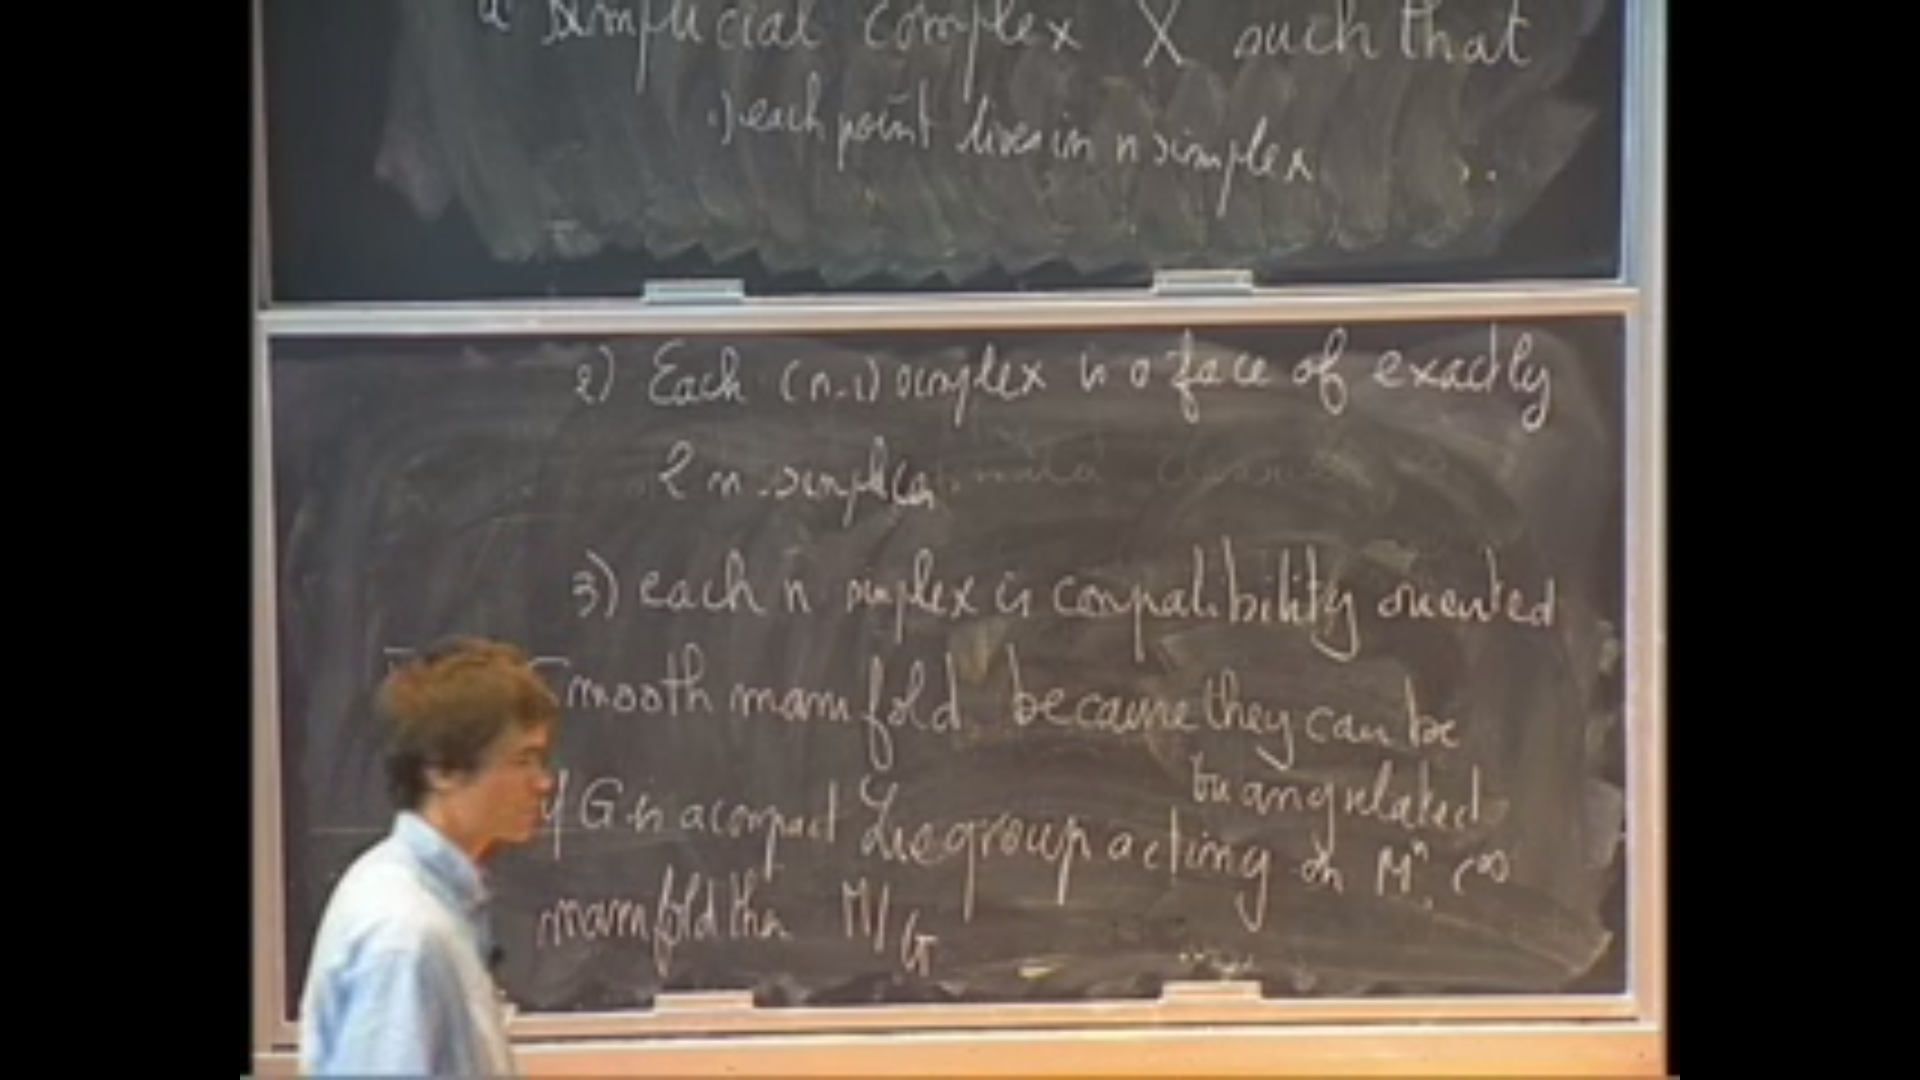 a simplicial complex X such that
1) each point lives in n simplex
2) Each (n-1) simplex is a face of exactly
2 n-simplices
3) each n simplex is compatibility oriented
Smooth manifold because they can be
triangulated
If G is a compact Lie group acting on Mⁿ, C∞
manifold then M/G